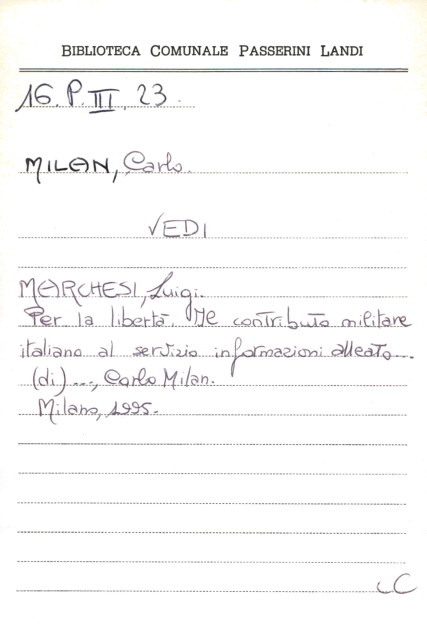 BIBLIOTECA COMUNALE PASSERINI LANDI
16. P. III. 23
MILAN, Carlo.
VEDI
MARCHESI, Luigi.
Per la libertà. Il contributo militare
italiano al servizio informazioni alleato...
(di) ..., Carlo Milan.
Milano, 1995.
CC